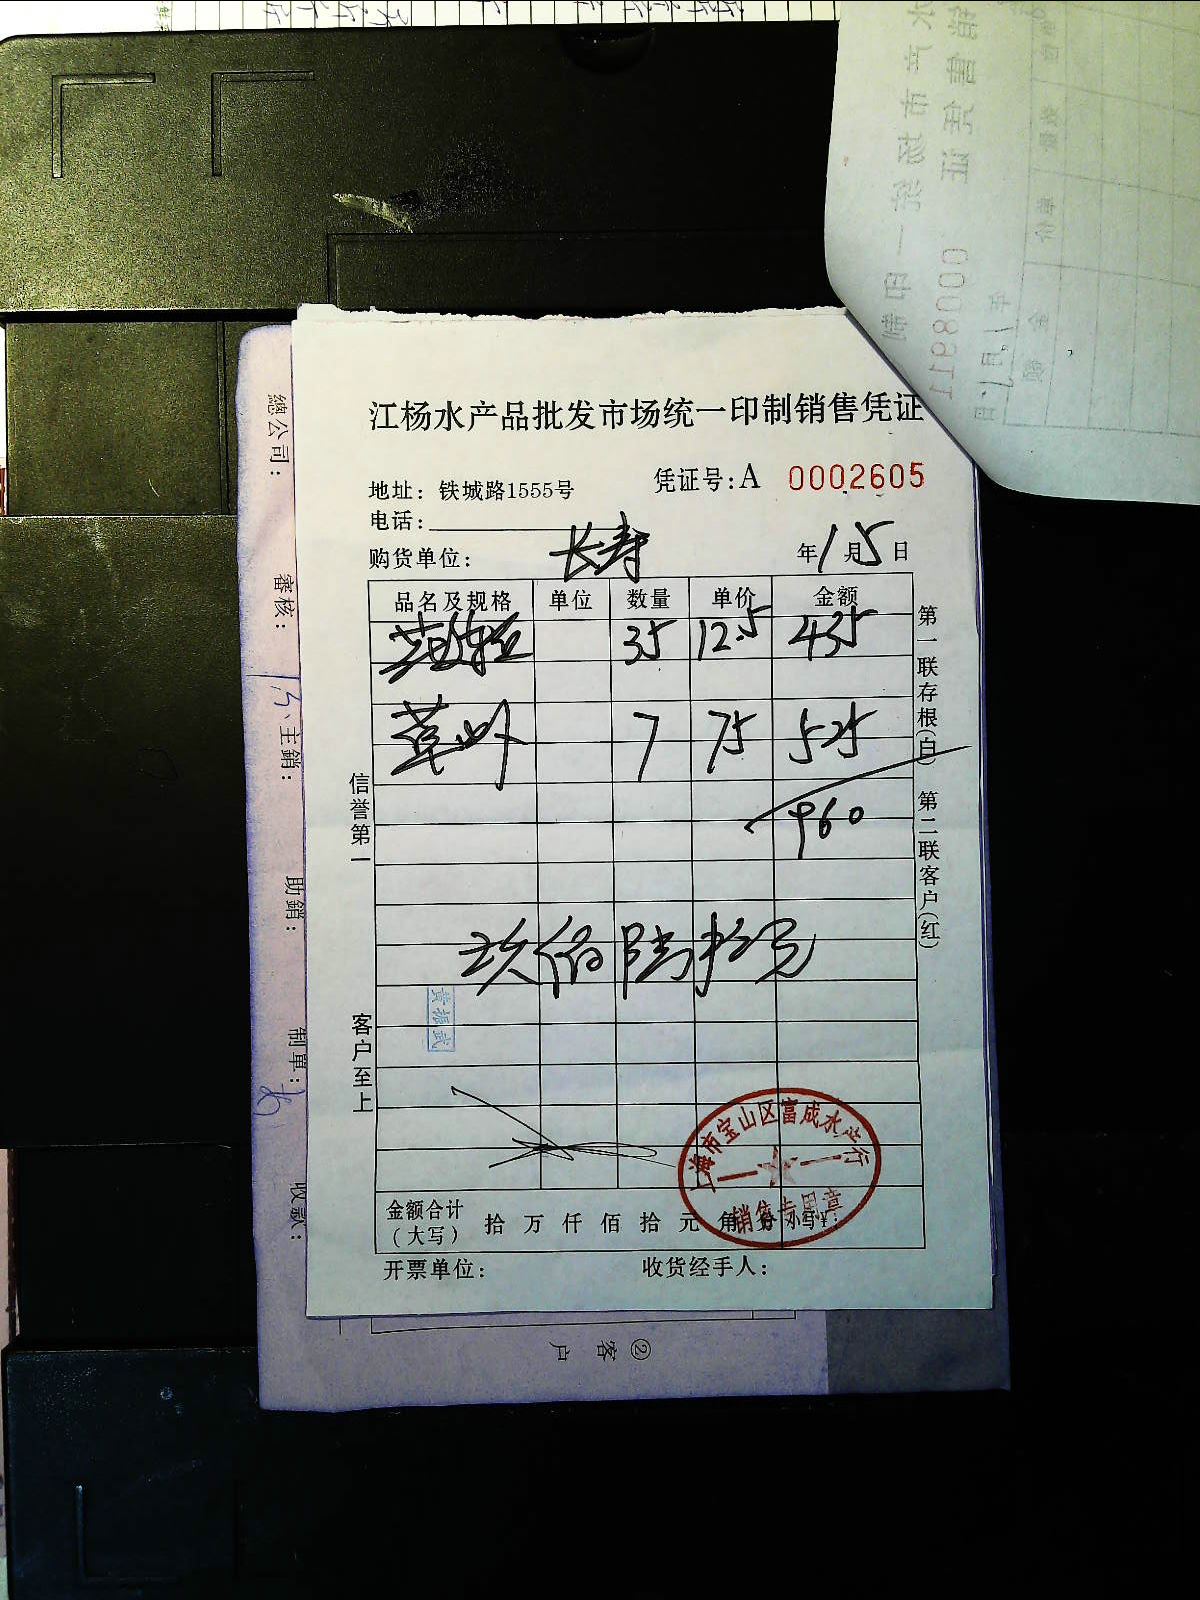 江杨水产品批发市场统一印制销售凭证
地址: 铁城路1555号
凭证号: A 0002605
电话:
购货单位: 长寿
年1月5日
品名及规格 单位 数量 单价 金额
35 12.5 435
草 7 75 525
960
玖佰陆拾元
黄振武
金额合计(大写) 拾 万 仟 佰 拾 元 角 分 小写¥:
开票单位:
收货经手人:
上海市宝山区富成水产行
销售专用章
信誉第一
客户至上
第一联存根(白) 第二联客户(红)
總公司:
審核:
主銷:
助銷:
制單:
收款:
②客户
0008911